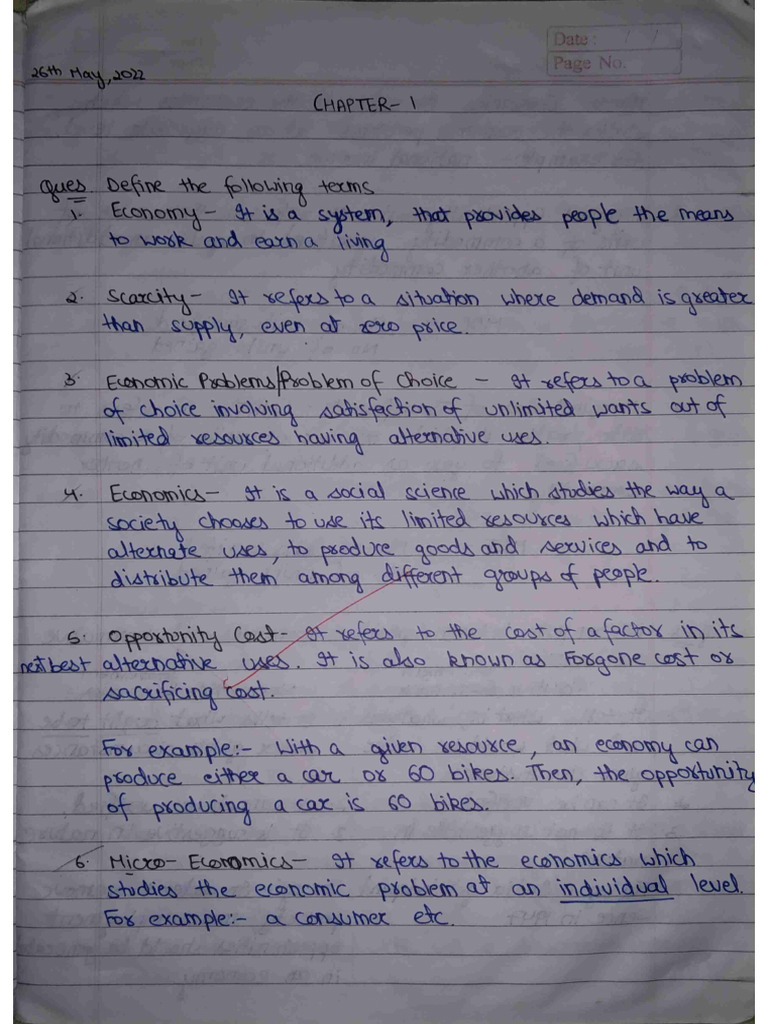 Date: / /
Page No.
26th May, 2022
CHAPTER-1
Ques Define the following terms
1. Economy - It is a system, that provides people the means
to work and earn a living
2. Scarcity - It refers to a situation where demand is greater
than supply, even at zero price.
3. Economic Problems/Problem of Choice - It refers to a problem
of choice involving satisfaction of unlimited wants out of
limited resources having alternative uses.
4. Economics - It is a social science which studies the way a
society chooses to use its limited resources which have
alternate uses, to produce goods and services and to
distribute them among different groups of people.
5. Opportunity Cost - It refers to the cost of a factor in its
next best alternative uses. It is also known as Forgone cost or
sacrificing cost.
For example:- With a given resource, an economy can
produce either a car or 60 bikes. Then, the opportunity
of producing a car is 60 bikes.
6. Micro-Economics - It refers to the economics which
studies the economic problem at an individual level.
For example:- a consumer etc.